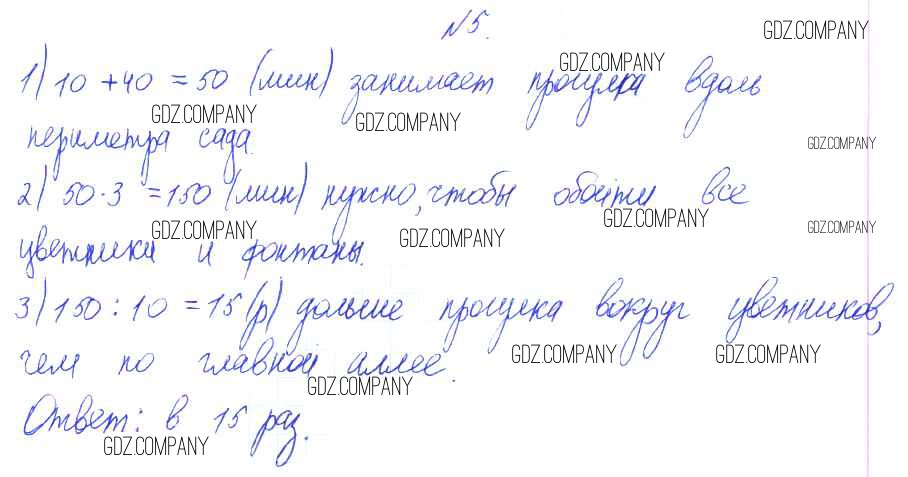 №5.
GDZ.COMPANY
1) 10 + 40 = 50 (мин) занимает прогулка вдоль
GDZ.COMPANY
GDZ.COMPANY GDZ.COMPANY
периметра сада.
GDZ.COMPANY
2) 50·3 = 150 (мин) нужно, чтобы обойти все
GDZ.COMPANY
GDZ.COMPANY GDZ.COMPANY GDZ.COMPANY
цветники и фонтаны.
3) 150 : 10 = 15 (р) дольше прогулка вокруг цветников,
чем по главной аллее.
GDZ.COMPANY GDZ.COMPANY
GDZ.COMPANY
Ответ: в 15 раз.
GDZ.COMPANY